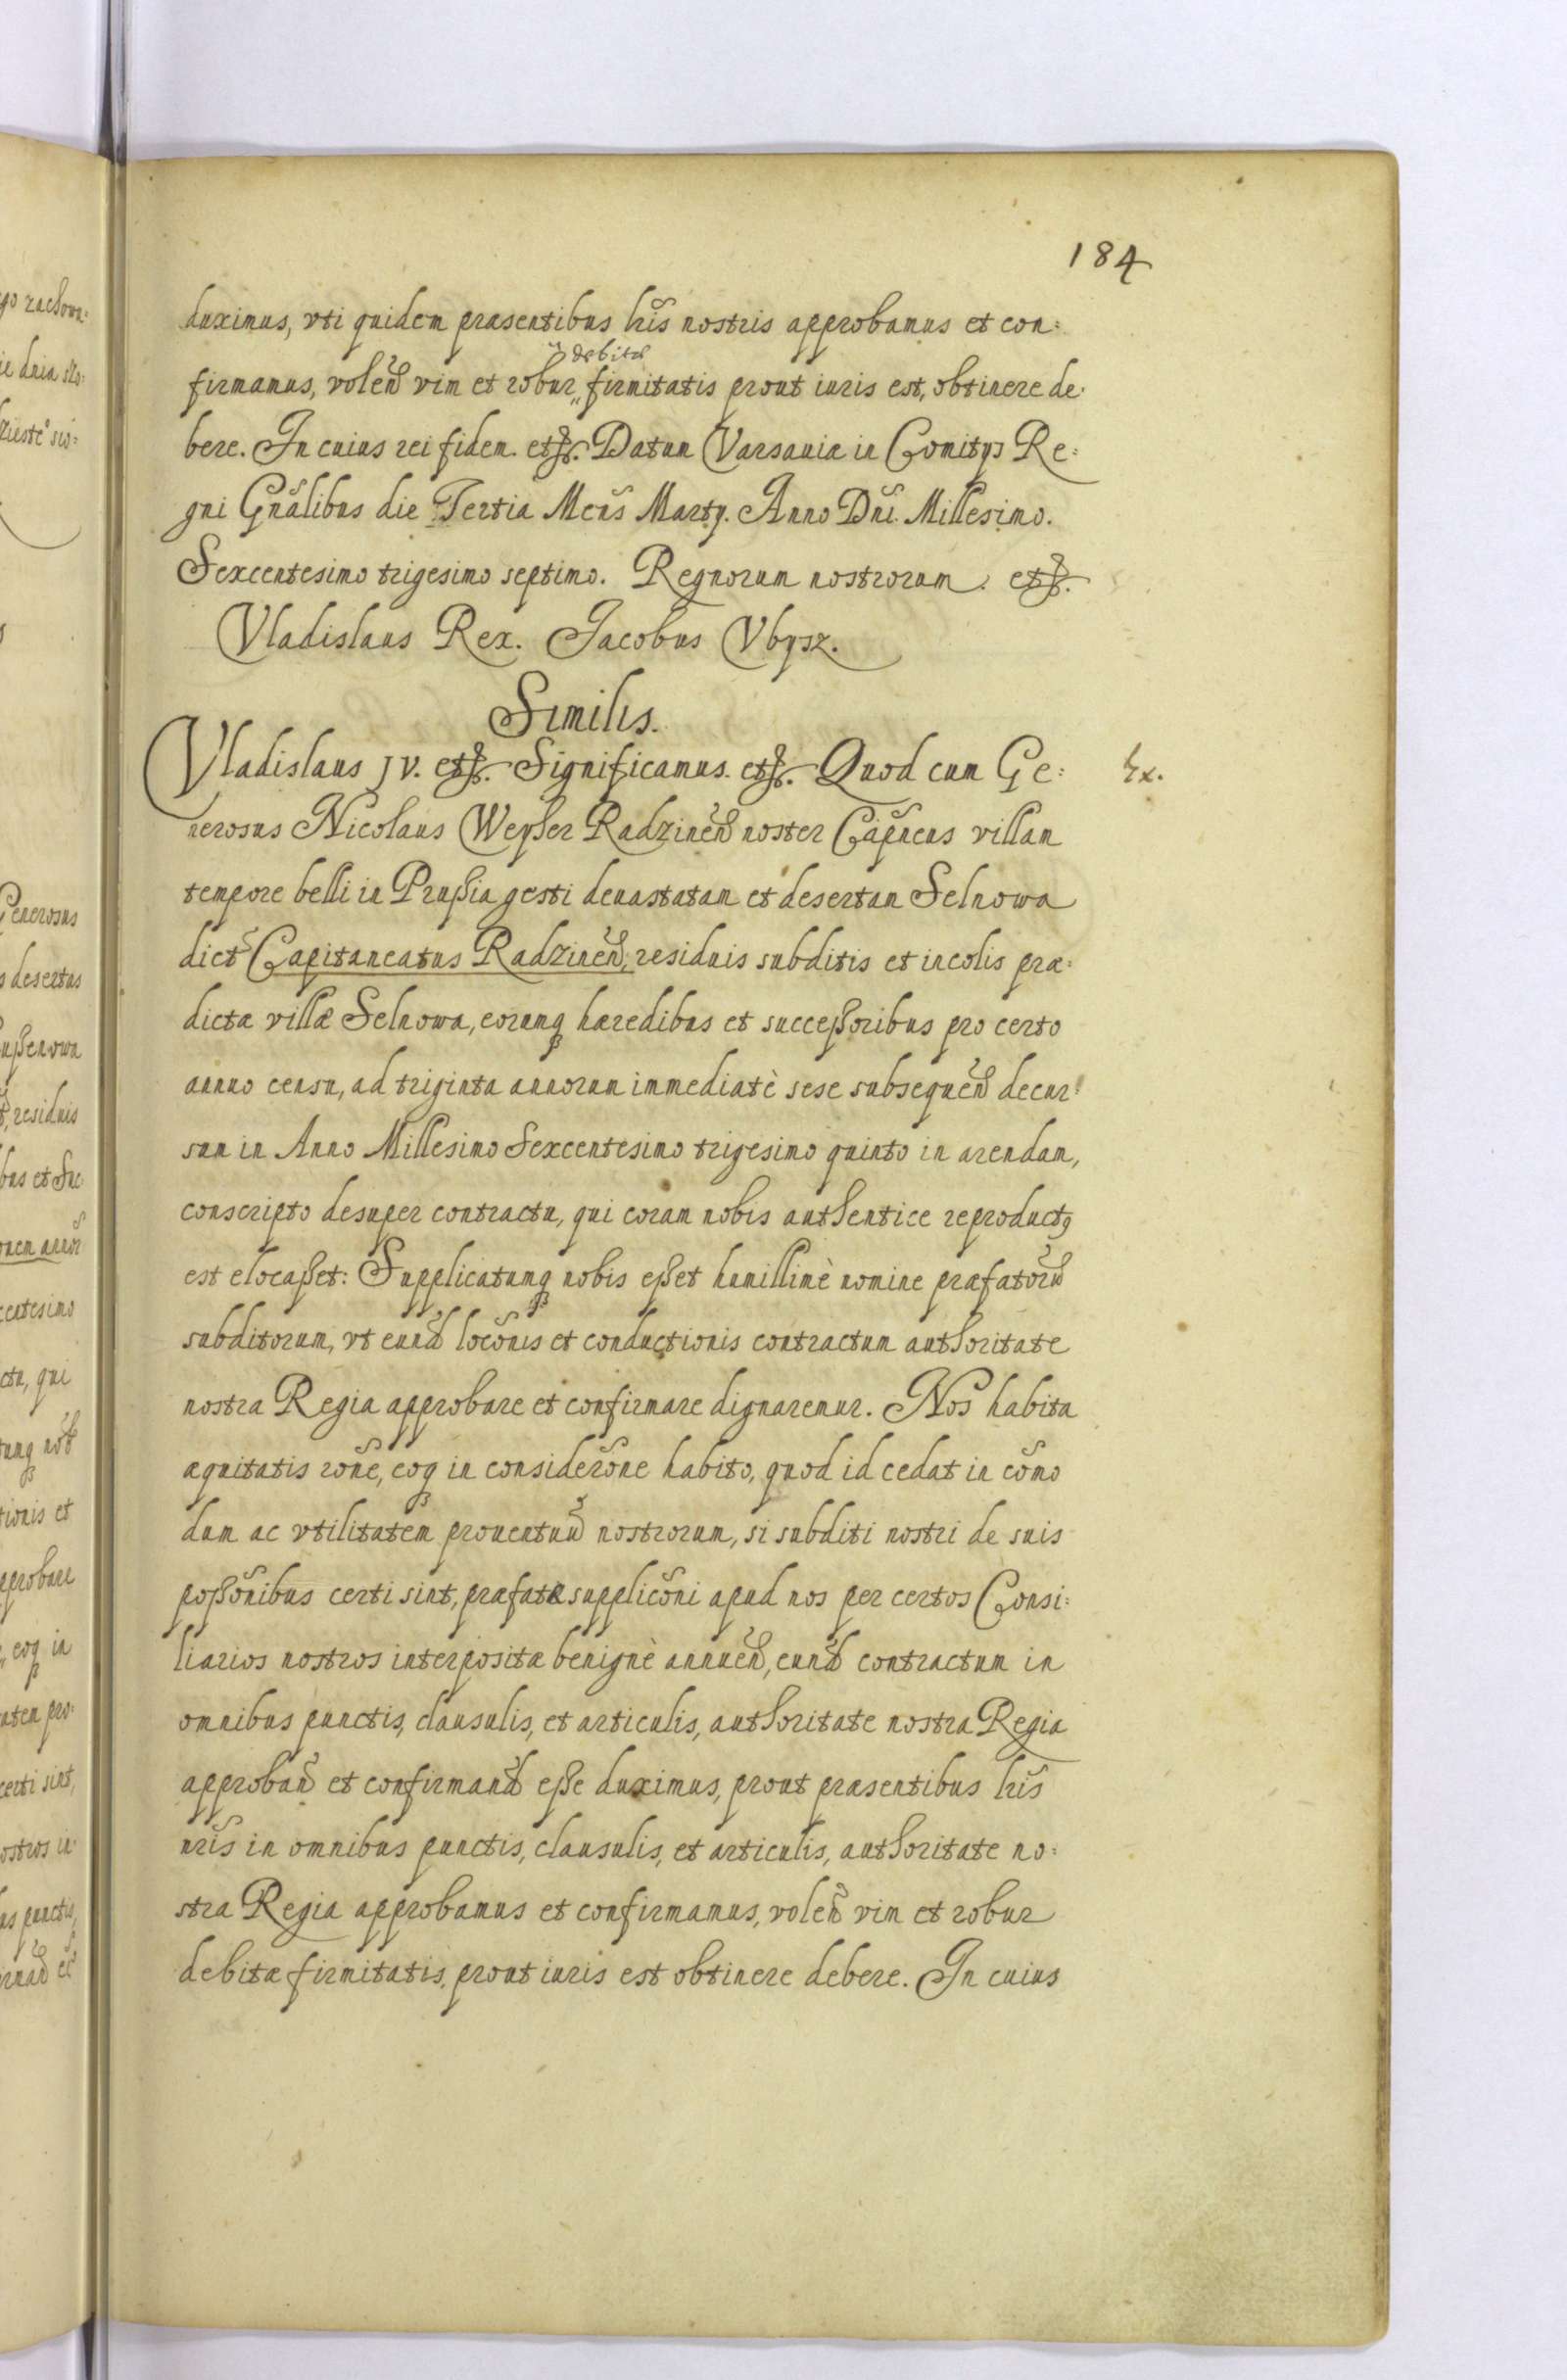 184
duximus, vti quidem præsentibus lris nostris approbamus et con:
debitæ
firmamus, voleñ vim et robur firmitatis prout iuris est, obtinere de:
bere. In cuius rei fidem. etc. Datum Varsauiæ in Comitijs Re:
gni Gñalibus die Tertia Meñs Martij. Anno Dñi. Millesimo.
Sexcentesimo trigesimo septimo. Regnorum nostrorum. etc.
Vladislaus Rex. Jacobus Vbysz.
Similis.
Vladislaus IV. etc. Significamus. etc. Quod cum Ge:
Ex.
nerosus Nicolaus Weyher Radzineñ noster Capñeus villam
tempore belli in Prußia gesti deuastatam et desertam Selnowa
dict Capitaneatus Radzineñ, residuis subditis et incolis præ:
dictæ villæ Selnowa, eorumq hæredibus et succeßoribus pro certo
annuo censu, ad triginta annorum immediatè sese subsequeñ decur:
sum in Anno Millesimo Sexcentesimo trigesimo quinto in arendam,
conscripto desuper contractu, qui coram nobis authentice reproductꝰ
est elocaßet: Supplicatumq nobis eßet humillimè nomine præfatorũ
subditorum, vt eund locõnis et conductionis contractum authoritate
nostra Regia approbare et confirmare dignaremur. Nos habita
æquitatis rõne, eoq in considerõne habito, quod id cedat in cõmo
dum ac vtilitatem prouentuũ nostrorum, si subditi nostri de suis
poßõnibus certi sint, præfatæ supplicõni apud nos per certos Consi:
liarios nostros interpositæ benignè annueñ, eund contractum in
omnibus punctis, clausulis, et articulis, authoritate nostra Regia
approband et confirmand eße duximus, prout præsentibus lris
nris in omnibus punctis, clausulis, et articulis, authoritate no:
stra Regia approbamus et confirmamus, voleñ vim et robur
debitæ firmitatis, prout iuris est obtinere debere. In cuius